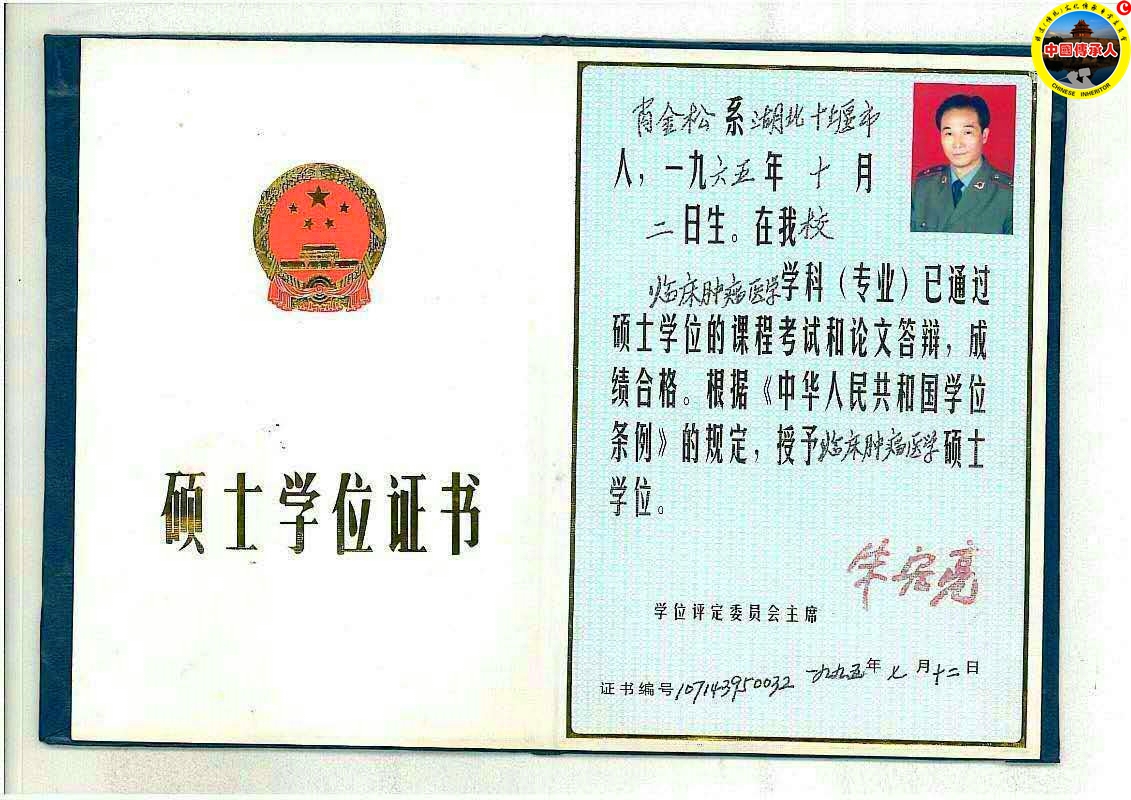 硕士学位证书
肖金松系湖北十堰市
人，一九六五年十月
二日生。在我校
临床肿瘤医学学科（专业）已通过
硕士学位的课程考试和论文答辩，成
绩合格。根据《中华人民共和国学位
条例》的规定，授予临床肿瘤医学硕士
学位。
学位评定委员会主席
证书编号107143950032 一九九五年七月十二日
中國傳承人
CHINESE INHERITOR